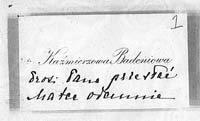 1
Kaźmierzowa Badeniowa
Prosi Pana przesłać
odemnie